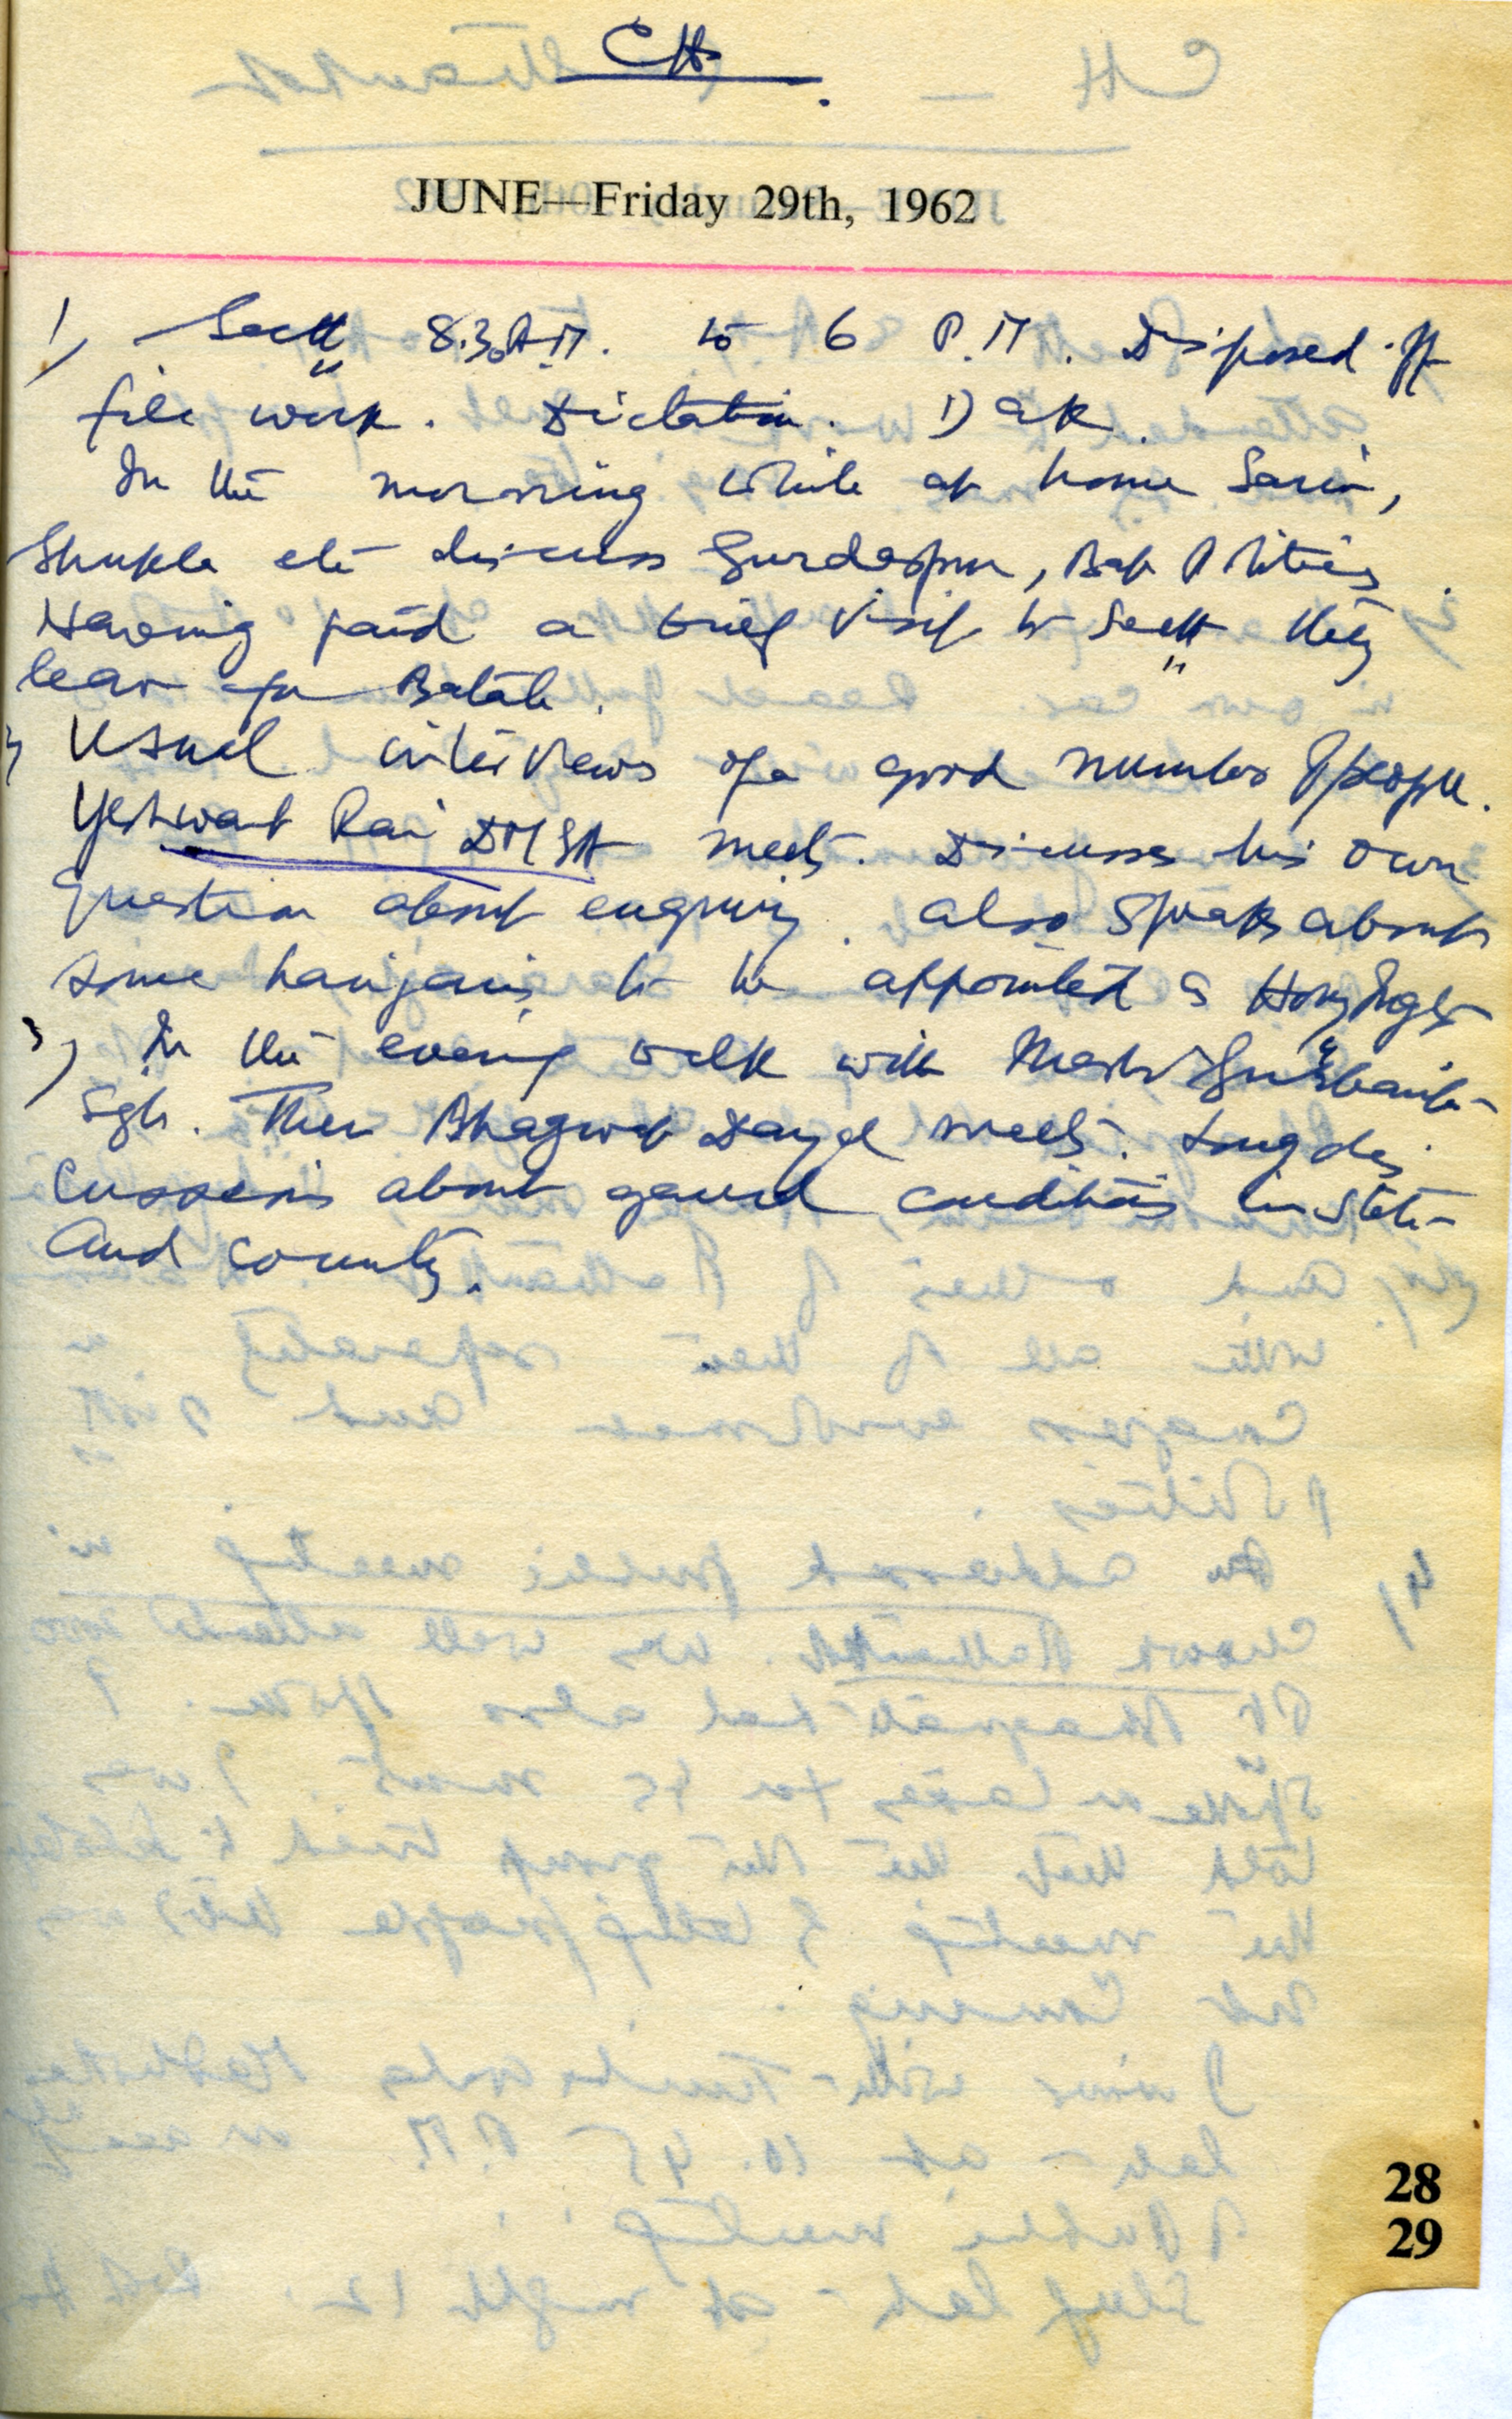 CH.
JUNE—Friday 29th, 1962
1) Sectt 8.30 A.M. to 6 P.M. Disposed off
file work. Dictation. Dak.
In the morning while at home Sarin,
Shukla etc discuss Gurdaspur, politics.
Having paid a brief visit to Sectt they
leave for Batala.
2) Usual interviews of a good number of people.
Yeshwant Rai DMSH meets. Discusses his own
question about enquiry. Also speaks about
some harijans to be appointed as
3) In the evening walk with Master Gurbanta
Sgh. Then Bhagwat Dayal meets. Long dis
cussions about general conditions in State
and country.
28
29